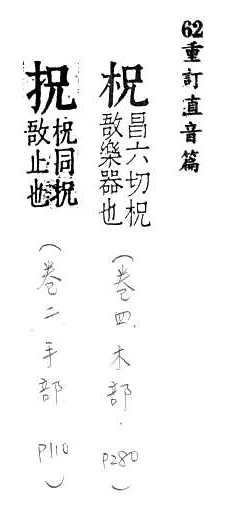 62重訂直音篇
柷
昌六切柷
敔樂器也
(巻四.木部.P280)
柷同柷
敔止也
(巻二手部 P110)